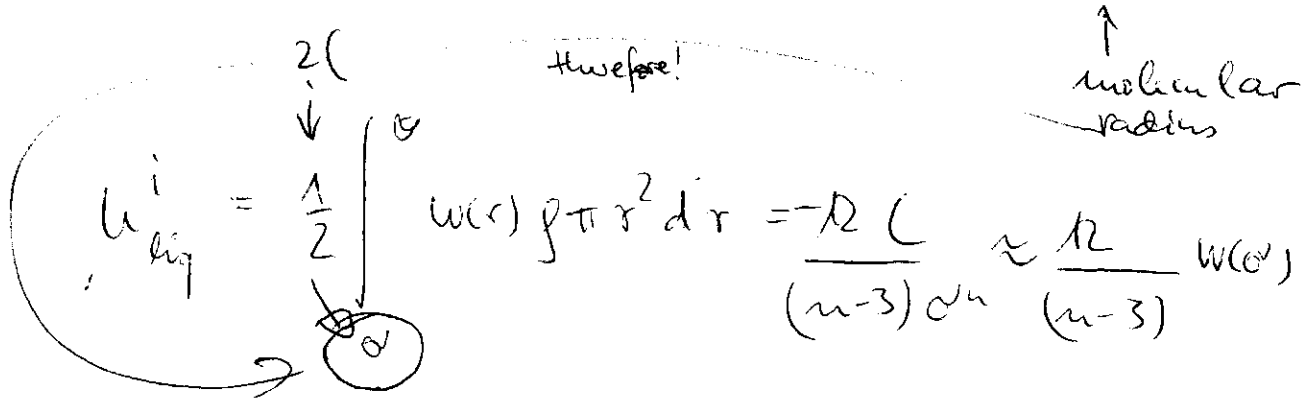 2(
therefore!
molecular
radius
u^i_liq = 1/2 ∫ w(r) ρ π r² dr = -12 C / (n-3) σ^n ≈ 12 / (n-3) w(σ)
σ